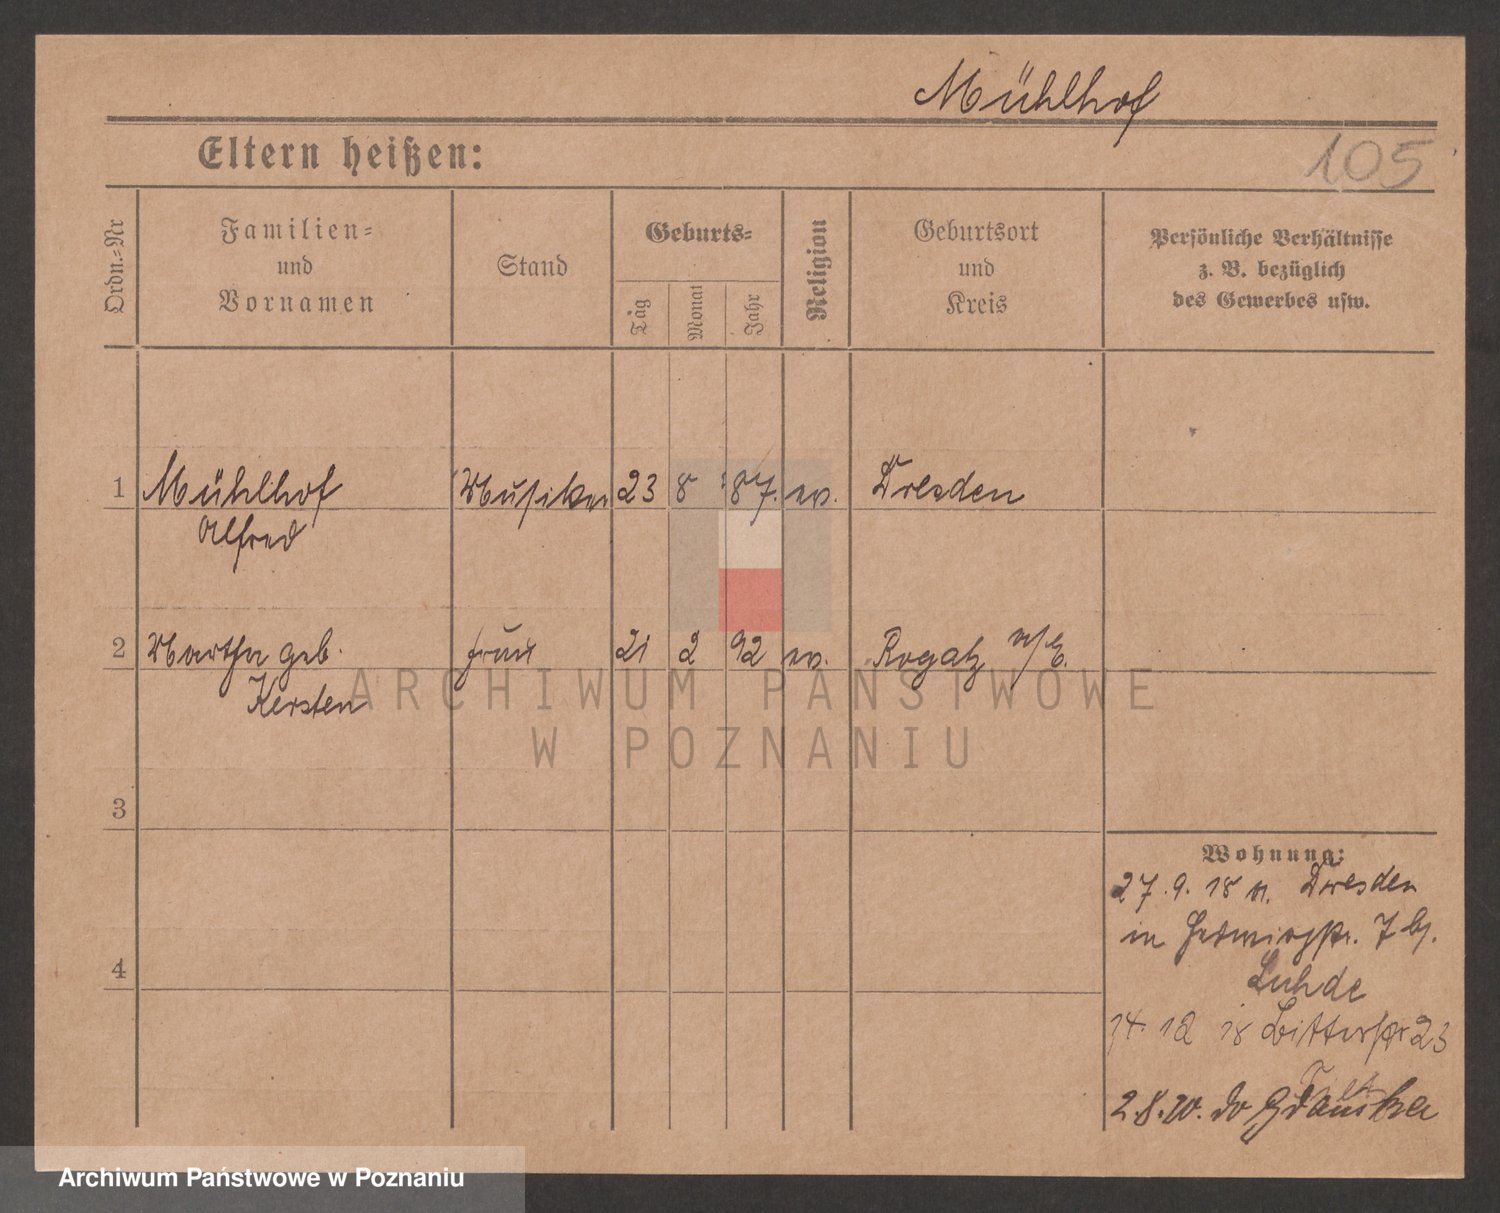 Mühlhof
Eltern heißen:
105
Ordn.-Nr
Familien-
und
Vornamen
Stand
Geburts-
Tag
Monat
Jahr
Religion
Geburtsort
und
Kreis
Persönliche Verhältnisse
z. B. bezüglich
des Gewerbes usw.
1 Mühlhof Musiker 23 8 87. ev. Dresden
Alfred
2 Martha geb. Frau 21 2 92 ev. Rogatz a/E.
Kersten
ARCHIWUM PAŃSTWOWE
W POZNANIU
3
Wohnung:
27. 9. 18 v. Dresden
in 7 bj.
Luhde
4
14. 12 18 Ritterstr 23
2.8.20. do Gdańska
Archiwum Państwowe w Poznaniu